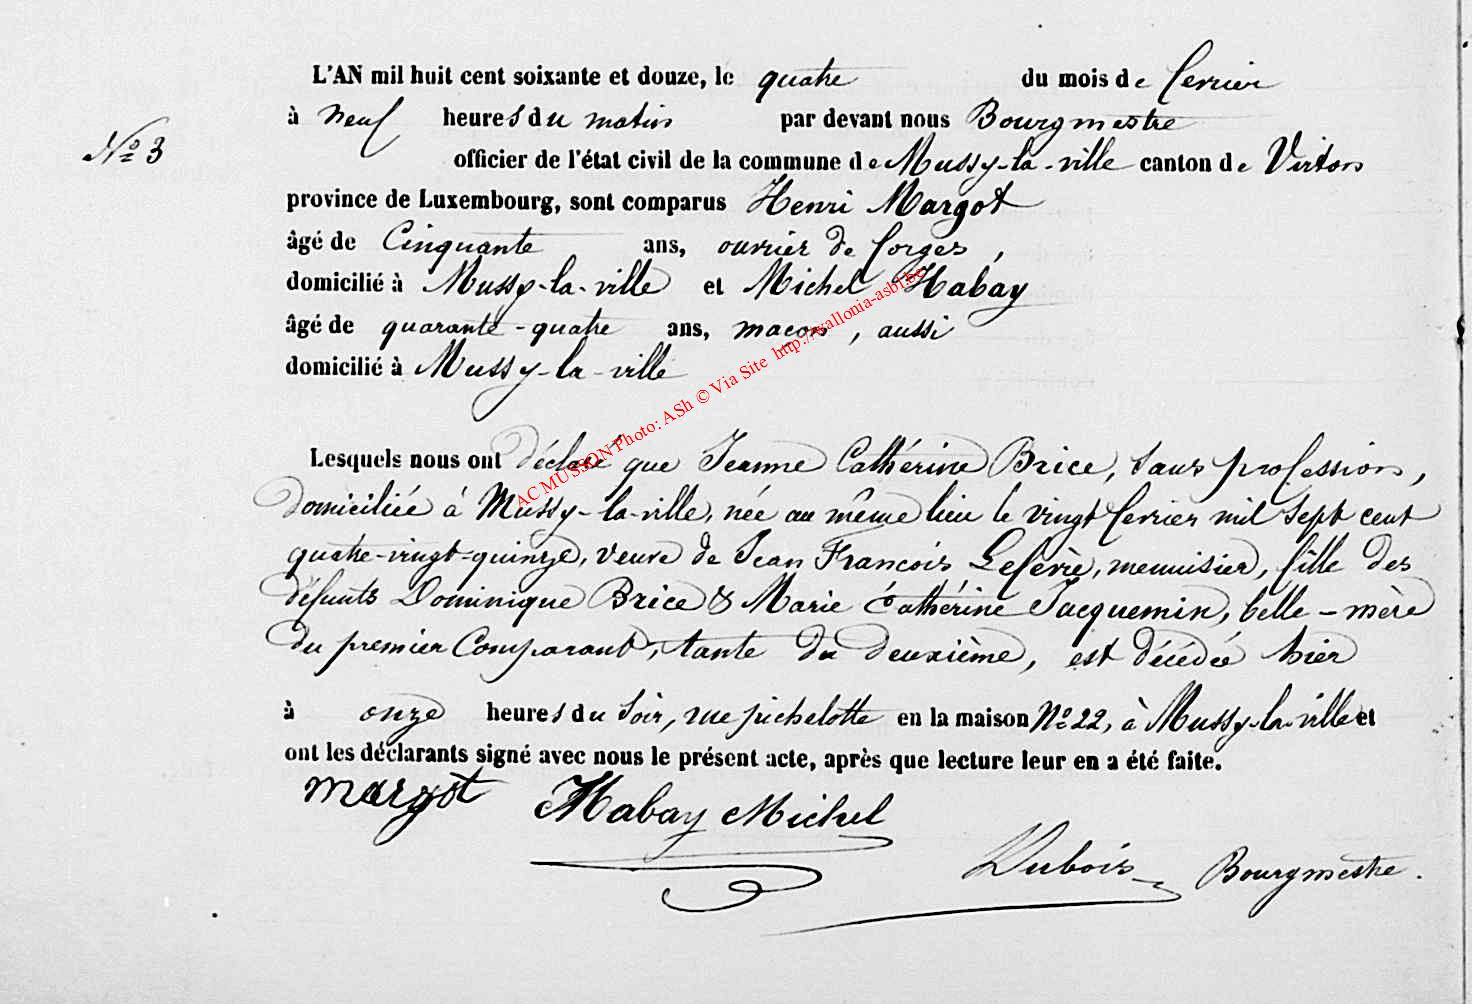 L'AN mil huit cent soixante et douze, le quatre du mois de fevrier
à neuf heures du matin par devant nous Bourgmestre
Nº 3
officier de l'état civil de la commune de Mussy-la-ville canton de Virton
province de Luxembourg, sont comparus Henri Margot
âgé de Cinquante ans, ouvrier de forges,
domicilié à Mussy-la-ville et Michel Habay
âgé de quarante-quatre ans, maçon, aussi
domicilié à Mussy-la-ville
AC MUSSON Photo: ASh © Via Site http://wallonia-asbl.be
Lesquels nous ont déclaré que Jeanne Cathérine Brice, sans profession,
domiciliée à Mussy-la-ville, née au même lieu le vingt fevrier mil sept cent
quatre-vingt-quinze, veuve de Jean François Lefèvre, menuisier, fille des
défunts Dominique Brice & Marie Cathérine Jacquemin, belle-mère
du premier Comparant, tante du deuxième, est décédée hier
à onze heures du soir, rue pichelotte en la maison Nº 22, à Mussy-la-ville et
ont les déclarants signé avec nous le présent acte, après que lecture leur en a été faite.
margot Habay Michel
Dubois Bourgmestre.